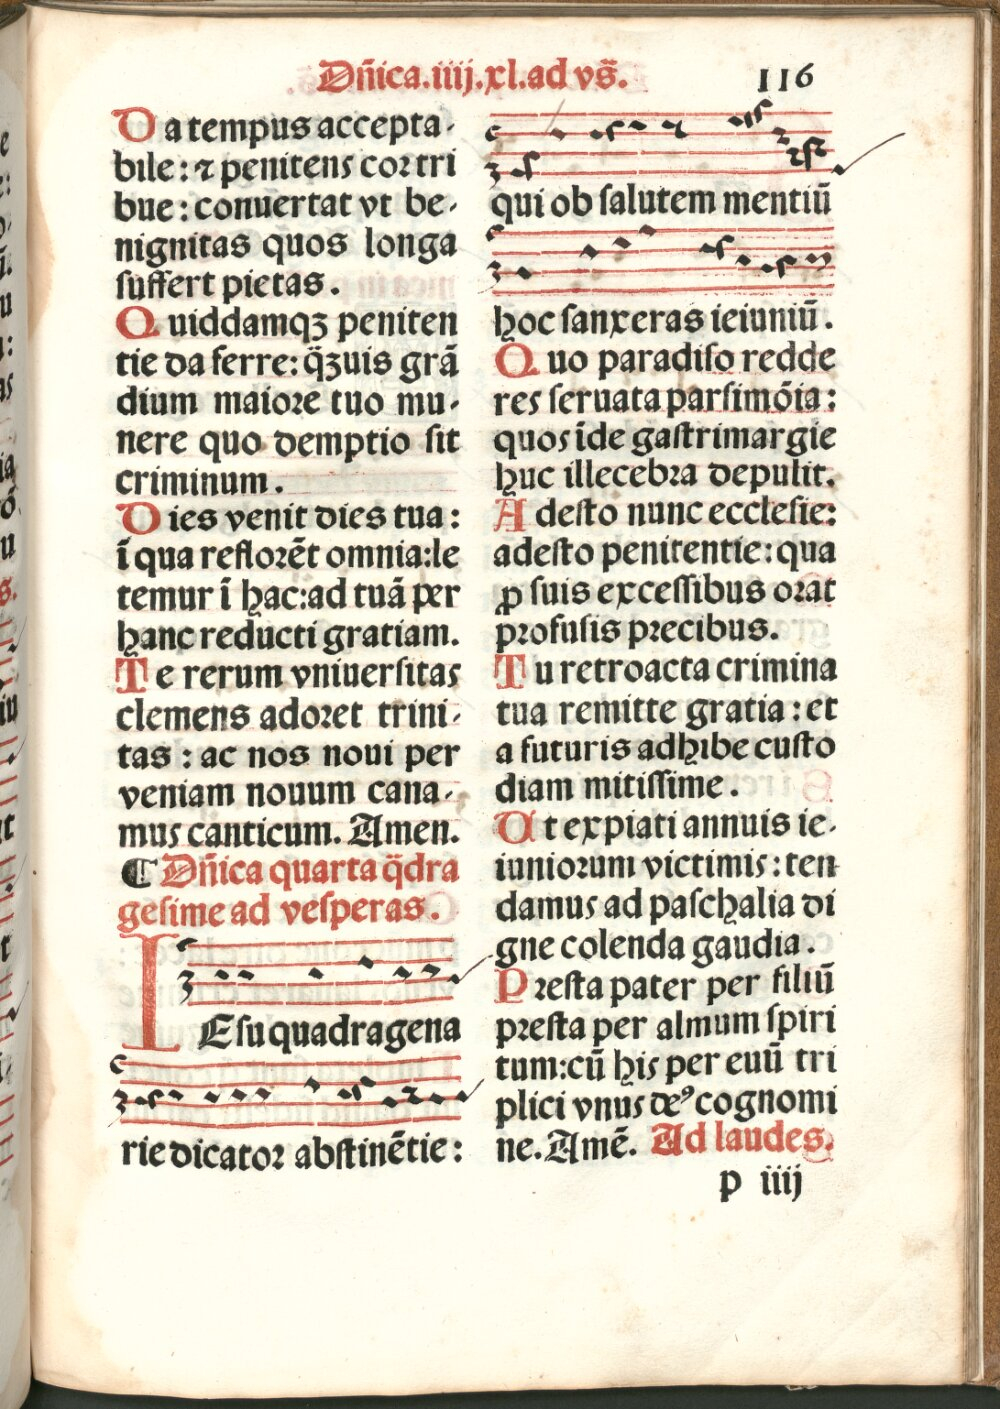 Dñica.iiij.xl.ad vs̃. 116
Da tempus accepta-
bile: ⁊ penitens cor tri
bue: conuertat vt be-
nignitas quos longa
suffert pietas.
Quiddamqꝫ peniten
tie da ferre: q̃ꝫuis grã
dium maiore tuo mu-
nere quo demptio sit
criminum.
Dies venit dies tua:
ĩ qua reflorẽt omnia: le
temur ĩ hac: ad tuã per
hanc reducti gratiam.
Te rerum vniuersitas
clemens adoret trini-
tas: ac nos noui per
veniam nouum cana-
mus canticum. Amen.
¶ Dñica quarta q̃dra
gesime ad vesperas.
IEsu quadragena
rie dicator abstinẽtie:
qui ob salutem mentiũ
hoc sanxeras ieiuniũ.
Quo paradiso redde
res seruata parsimõia:
quos ĩde gastrimargie
huc illecebra depulit.
Adesto nunc ecclesie:
adesto penitentie: qua
ꝓ suis excessibus orat
profusis precibus.
Tu retroacta crimina
tua remitte gratia: et
a futuris adhibe custo
diam mitissime.
Ut expiati annuis ie-
iuniorum victimis: ten
damus ad paschalia di
gne colenda gaudia.
Presta pater per filiũ
presta per almum spiri
tum: cũ his per euũ tri
plici vnus deꝰ cognomi
ne. Amẽ. Ad laudes.
p iiij